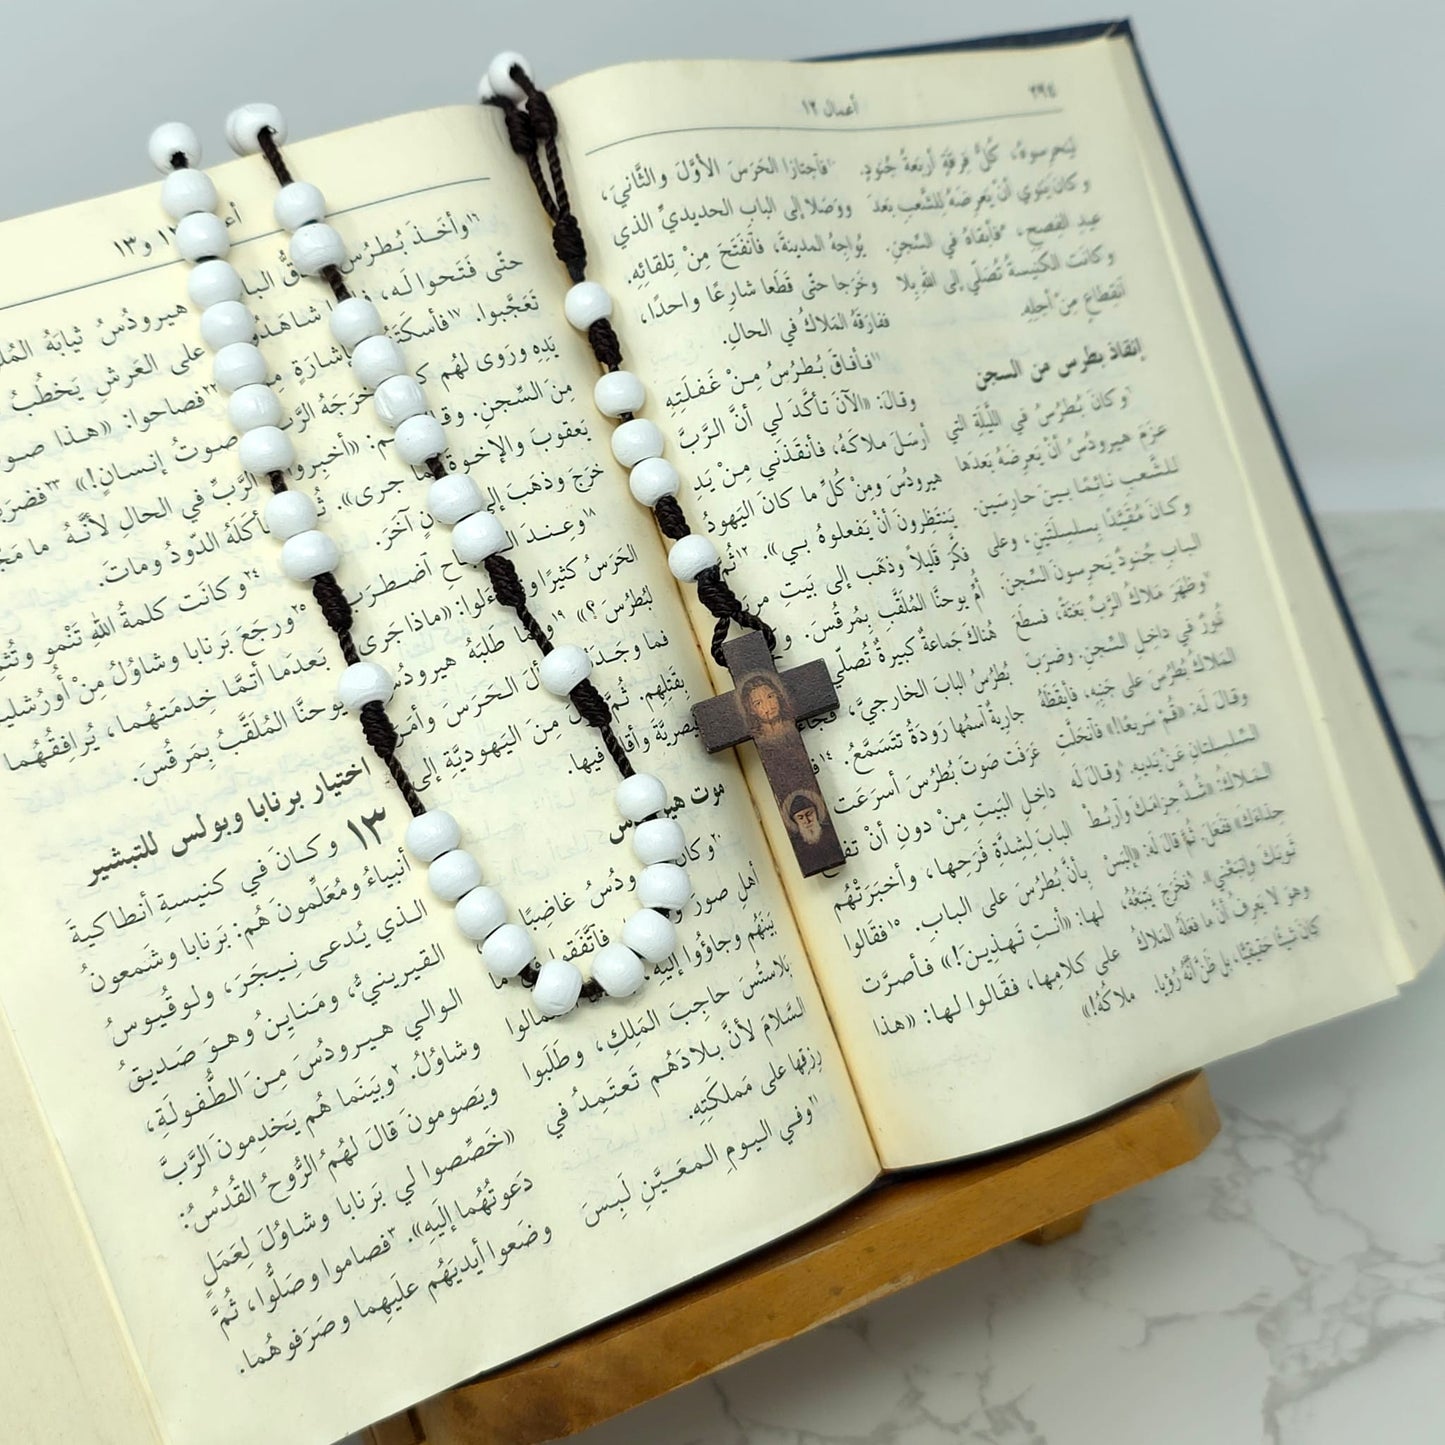 ٢٩٤
أعمال ١٢
ليَحرِسوهُ، كُلُّ فِرقَةٍ أربَعَةُ جُنودٍ.
وكانَ يَنوي أنْ يَعرِضَهُ لِلشَّعبِ بَعدَ
عيدِ الفِصحِ، فأبقاهُ في السِّجنِ.
وكانَتِ الكَنيسةُ تُصلّي إلى اللهِ بِلا
اَنقِطاعٍ مِنْ أجلِهِ.
إنقاذ بطرس من السجن
٦وكانَ بُطرُسُ في اللَّيلَةِ التي
عزَمَ هيرودُسُ أنْ يَعرِضَهُ بَعدَها
للشَّعبِ نائِمًا بَينَ حارِسَينِ.
وكانَ مُقَيَّدًا بِسِلسِلتَينِ، وعلى
البابِ جُنودٌ يَحرِسونَ السِّجنَ.
٧وظهَرَ مَلاكُ الرَّبِّ بَغتَةً، فسطَعَ
نُورٌ في داخِلِ السِّجنِ. وضرَبَ
المَلاكُ بُطرُسَ على جَنبِهِ، فأيقَظَهُ
وقالَ لَه: «قُمْ سَريعًا!» فاَنحَلَّتِ
السِّلسِلتانِ عَنْ يَدَيهِ. ٨وقالَ لَه
المَلاكُ: «شُدَّ حِزامَكَ واَربُطْ
حِذاءَكَ» ففَعَلَ. ثُمَّ قالَ لَه: «إلبَسْ
ثَوبَكَ واَتبَعْني». ٩فخَرَجَ يَتبَعُهُ،
وهوَ لا يَعرِفُ أنَّ ما فعَلَهُ المَلاكُ
كانَ شَيئًا حَقيقيًّا، بل ظَنَّ أنَّهُ رُؤيا.
١٠فاَجتازا الحَرَسَ الأوَّلَ والثَّانيَ،
ووَصَلا إلى البابِ الحديديِّ الذي
يُواجِهُ المدينةَ، فاَنفَتَحَ مِنْ تِلقائِهِ.
وخَرَجا حتّى قَطَعا شارِعًا واحدًا،
ففارَقَهُ المَلاكُ في الحالِ.
١١فأفاقَ بُطرُسُ مِنْ غَفلَتِهِ
وقالَ: «الآنَ تأكَّدَ لي أنَّ الرَّبَّ
أرسَلَ مَلاكَهُ، فأنقَذَني مِنْ يَدِ
هيرودُسَ ومِنْ كُلِّ ما كانَ اليَهودُ
يَنتَظِرونَ أنْ يَفعلوهُ بي». ١٢ثُمَّ
فكَّرَ قَليلاً وذهَبَ إلى بَيتِ
أُمِّ يوحنَّا المُلَقَّبِ بِمَرقُسَ.
هُناكَ جَماعةٌ كبيرةٌ تُصلّي
بُطرُسُ البابَ الخارجيَّ،
جاريةٌ اَسمُها رَودَةُ تتَسَمَّعُ. ١٤
عرَفَت صَوتَ بُطرُسَ أسرَعَت
داخِلِ البَيتِ مِنْ دونِ أنْ
البابَ لِشِدَّةِ فَرَحِها، وأخبَرَتْهُم
بِأنَّ بُطرُسَ على البابِ. ١٥فقالوا
لها: «أنتِ تَهذينَ!» فأصَرَّت
على كلامِها، فقالوا لها: «هذا
ملاكُهُ!»
و١٣
١٦وأخَذَ بُطرُسُ
حتّى فَتَحوا لَه،
تَعَجَّبوا. ١٧
يَدِهِ ورَوى لهُم
مِنَ السِّجنِ.
يَعقوبَ والإخوةَ
خرَجَ وذهَبَ آخَرَ.
١٨وعِندَ اَضطَرَبَ
الحَرَسُ كثيرًا «ماذا جَرى
لبُطرُسَ؟» ١٩ طَلَبَهُ هيرودُسُ
فما الحَرَسَ وأمَرَ
بِقَتلِهِم. ثُمَّ مِنَ اليَهوديَّةِ إلى
فيها.
موت
٢٠وكانَ غاضِبًا
أهلِ صورَ فاَتَّفَقوا
بَينَهُم وجاؤُوا إلَيهِ،
بلاستُسَ حاجِبَ المَلِكِ، وطَلَبوا
السَّلامَ لأنَّ بلادَهُم تَعتَمِدُ في
رِزقِها على مَملكَتِهِ.
٢١وفي اليومِ المعَيَّنِ لَبِسَ
هيرودُسُ ثيابَهُ
على العَرشِ يَخطُبُ
٢٢فصاحوا: «هذا
صوتُ إنسانٍ!» ٢٣
الرَّبِّ في الحالِ لأنَّهُ ما
الدّودُ وماتَ.
٢٤وكانَت كلمةُ اللهِ تَنْمو
٢٥ورجَعَ بَرنابا وشاوُلُ مِنْ
بَعدَما أتمَّا خِدمَتَهُما، يُرافِقُهُما
يوحنَّا المُلَقَّبُ بِمَرقُسَ.
اختيار برنابا وبولس للتبشير
١٣ وكانَ في كنيسةِ أنطاكيةَ
أنبياءُ ومُعَلِّمونَ هُم: بَرنابا وشَمعونُ
الذي يُدعى نِيجَرَ، ولوقيوسُ
القيرينيُّ، ومَناينُ وهوَ صَديقُ
الوالي هيرودُسَ مِنَ الطُّفولَةِ،
وشاوُلُ. ٢وبَينَما هُم يَخدِمونَ الرَّبَّ
ويَصومونَ قالَ لهُمُ الرُّوحُ القُدُسُ:
«خَصِّصوا لي بَرنابا وشاوُلَ لِعَمَلٍ
دَعَوتُهُما إلَيهِ». ٣فصاموا وصَلُّوا، ثُمَّ
وضَعوا أيديَهُم علَيهِما وصَرَفوهُما.